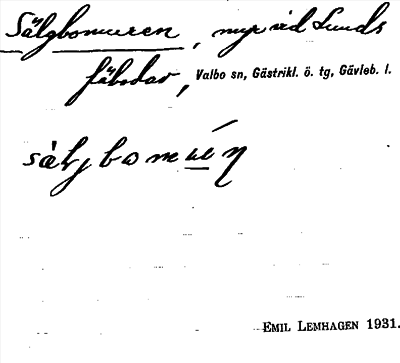 Sälgbomuren, myr vid Lunds
fäbodar, Valbo sn, Gästrikl. ö. tg, Gävleb. l.
EMIL LEMHAGEN 1931.